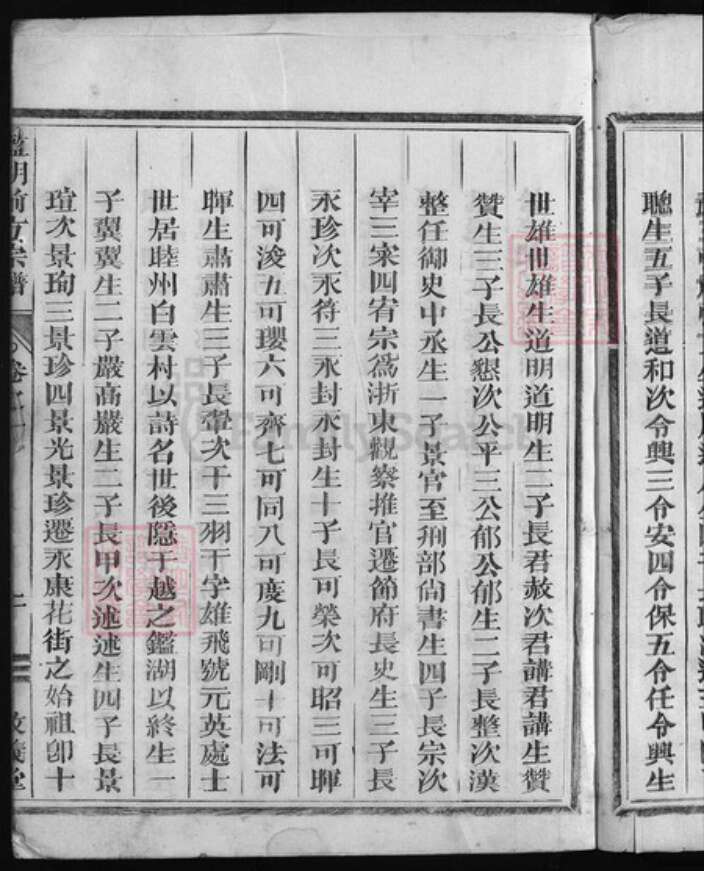 聰生五子長道和次令興三令安四令保五令任令興生
世雄世雄生道明道明生二子長君赦次君講君講生贊
贊生三子長公懇次公平三公郁公郁生二子長整次漢
整任御史中丞生一子景官至刑部尙書生四子長宗次
宰三寀四宥宗爲浙東觀察推官遷節府長史生三子長
永珍次永符三永封永封生十子長可榮次可昭三可暉
四可浚五可瓔六可齊七可同八可度九可剛十可法可
暉生肅肅生三子長鞏次干三羽干字雄飛號元英處士
世居睦州白雲村以詩名世後隱于越之鑑湖以終生一
子翼翼生二子嚴高嚴生二子長甲次述述生四子長景
瑄次景珣三景珍四景光景珍遷永康花街之始祖卽十
宗譜
卷之
FamilySearch